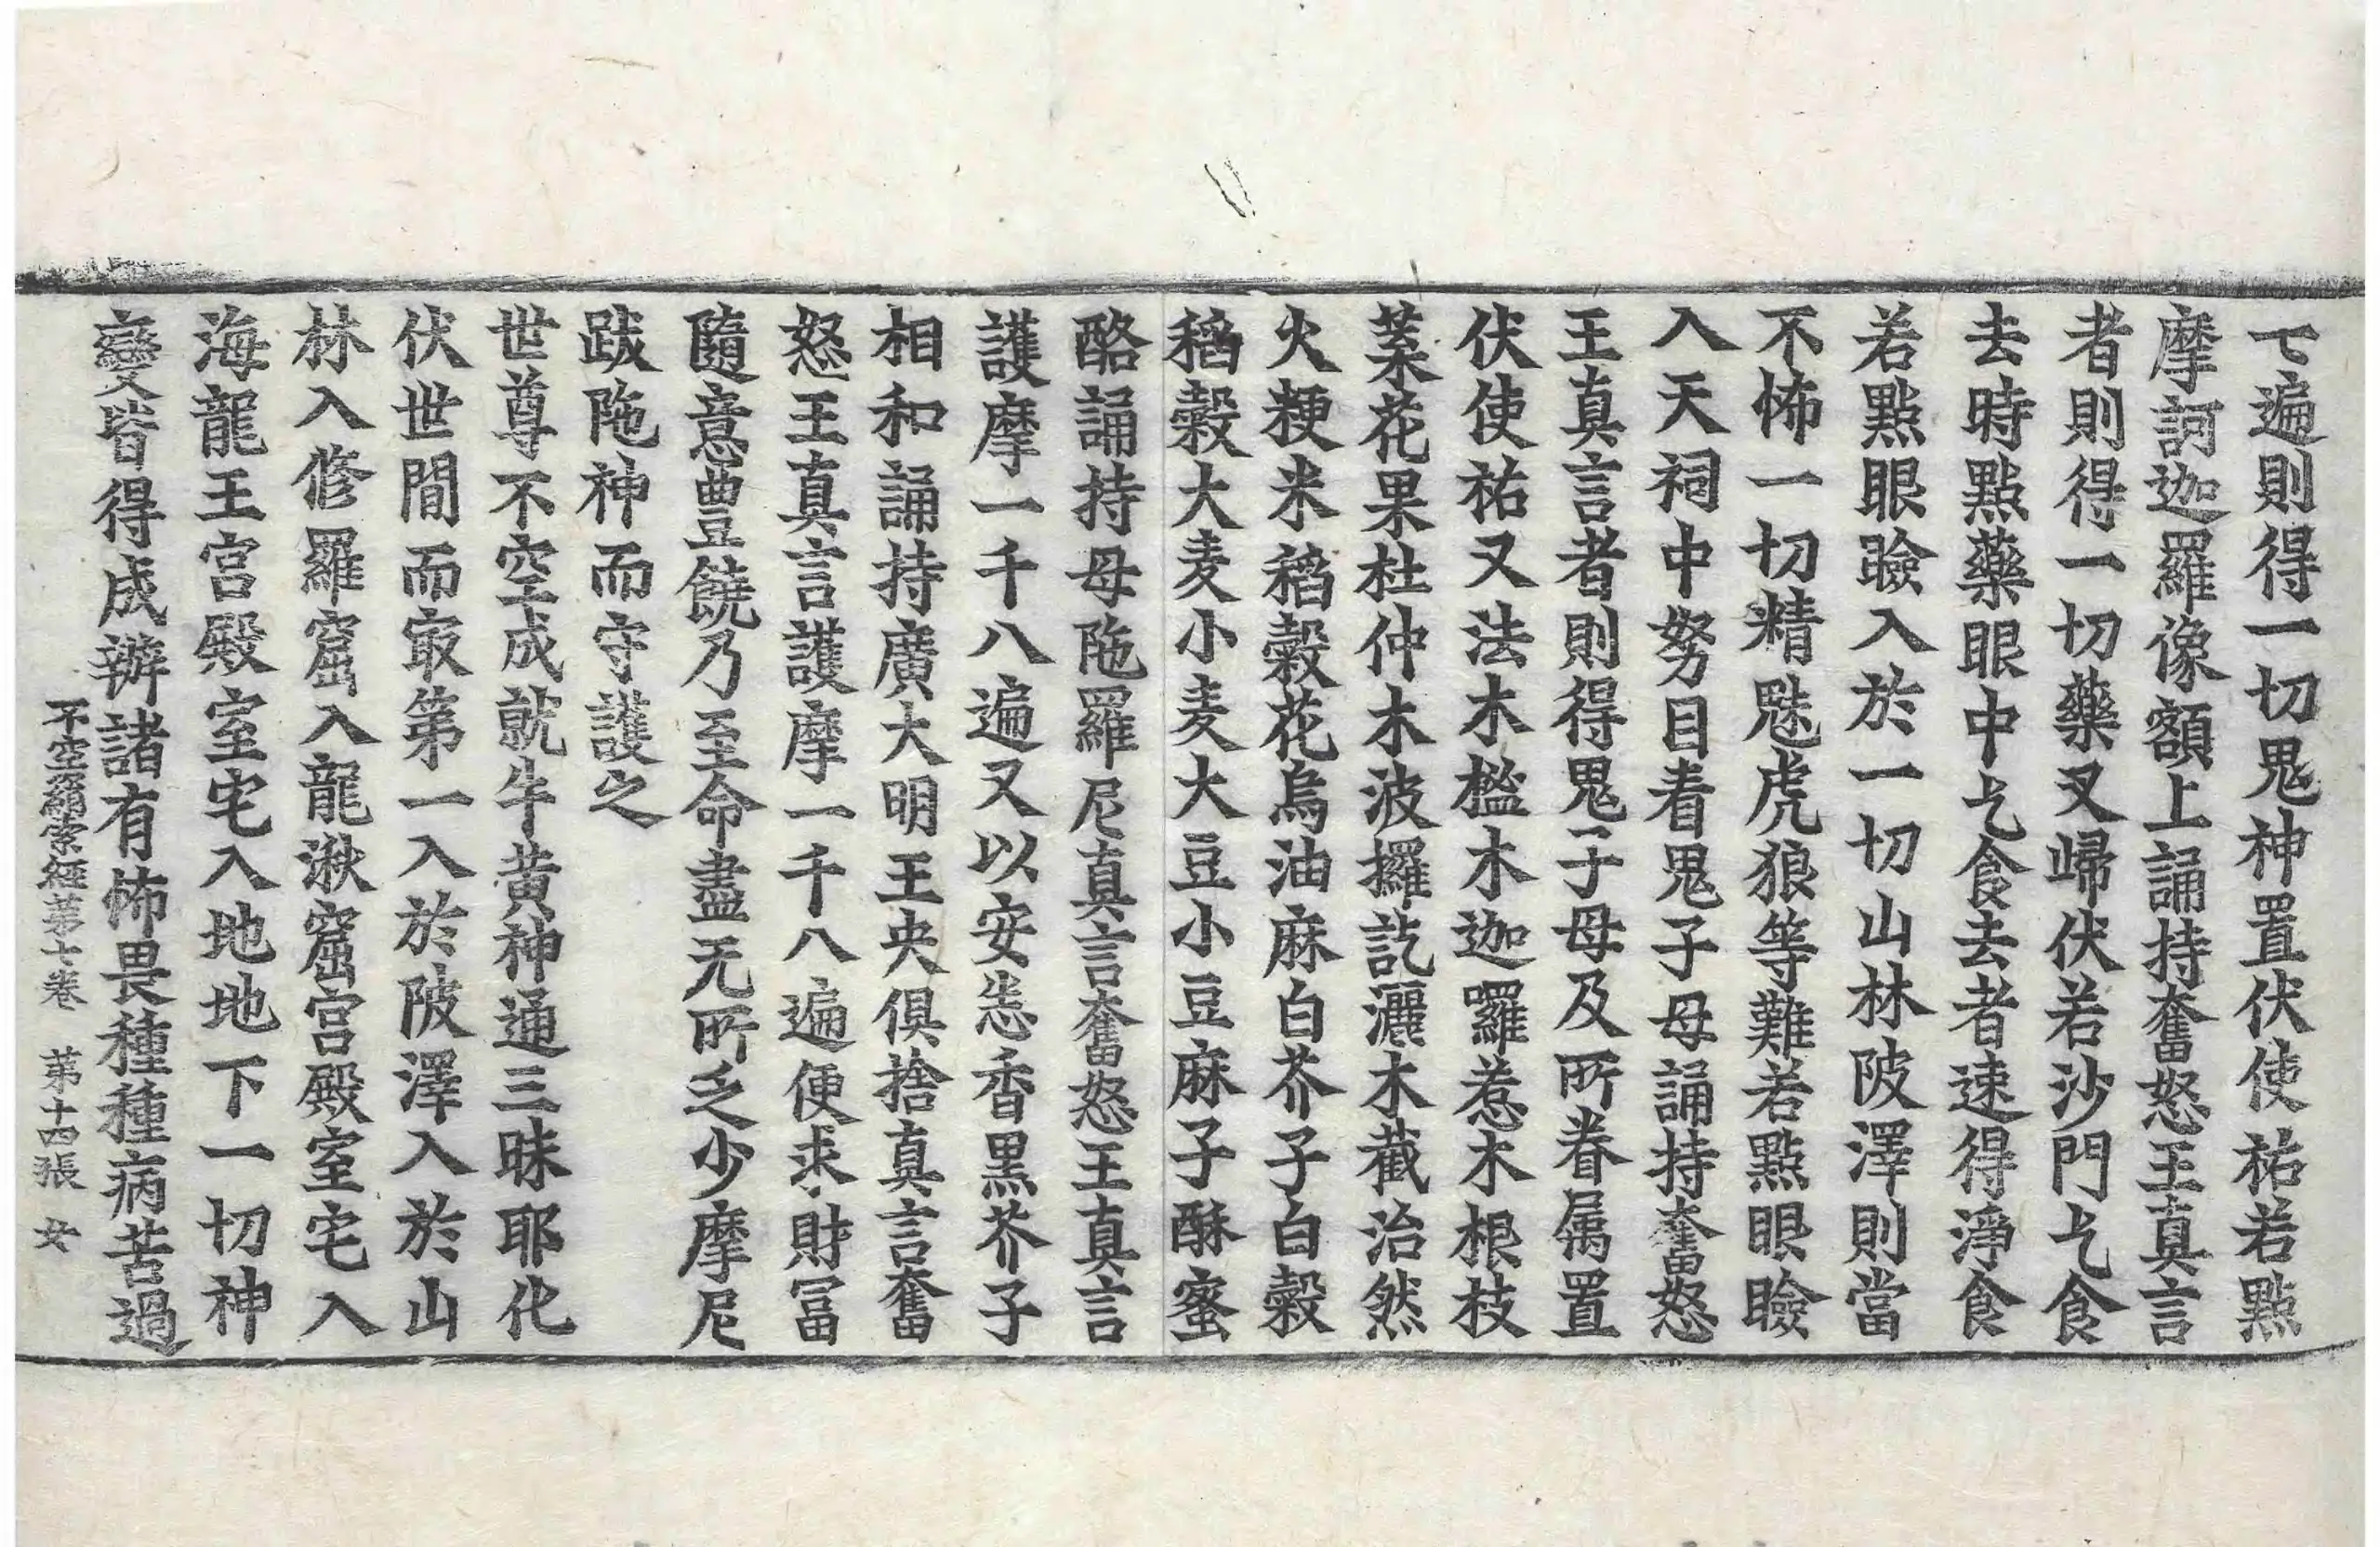 七遍則得一切鬼神置伏使祐若點
摩訶迦羅像額上誦持奮怒王真言
者則得一切藥叉歸伏若沙門乞食
去時點藥眼中乞食去者速得淨食
若點眼瞼入於一切山林陂澤則當
不怖一切精魅虎狼等難若點眼瞼
入天祠中努目看鬼子母誦持奮怒
王真言者則得鬼子母及所眷属置
伏使祐又法木檻木迦囉惹木根枝
葉花果杜仲木波攞訖灑木截治然
火粳米稻糓花烏油麻白芥子白糓
稻糓大麦小麦大豆小豆麻子酥蜜
酪誦持母陁羅尼真言奮怒王真言
護摩一千八遍又以安悉香黑芥子
相和誦持廣大明王央俱捨真言奮
怒王真言護摩一千八遍便求財冨
隨意豐饒乃至命盡无所乏少摩尼
跋陁神而守護之
世尊不空成就牛黄神通三昧耶化
伏世間而㝡第一入於陂澤入於山
林入修羅窟入龍湫窟宫殿室宅入
海龍王宫殿室宅入地地下一切神
變皆得成辦諸有怖畏種種病苦過
不空羂索經第七卷　第十四張　女